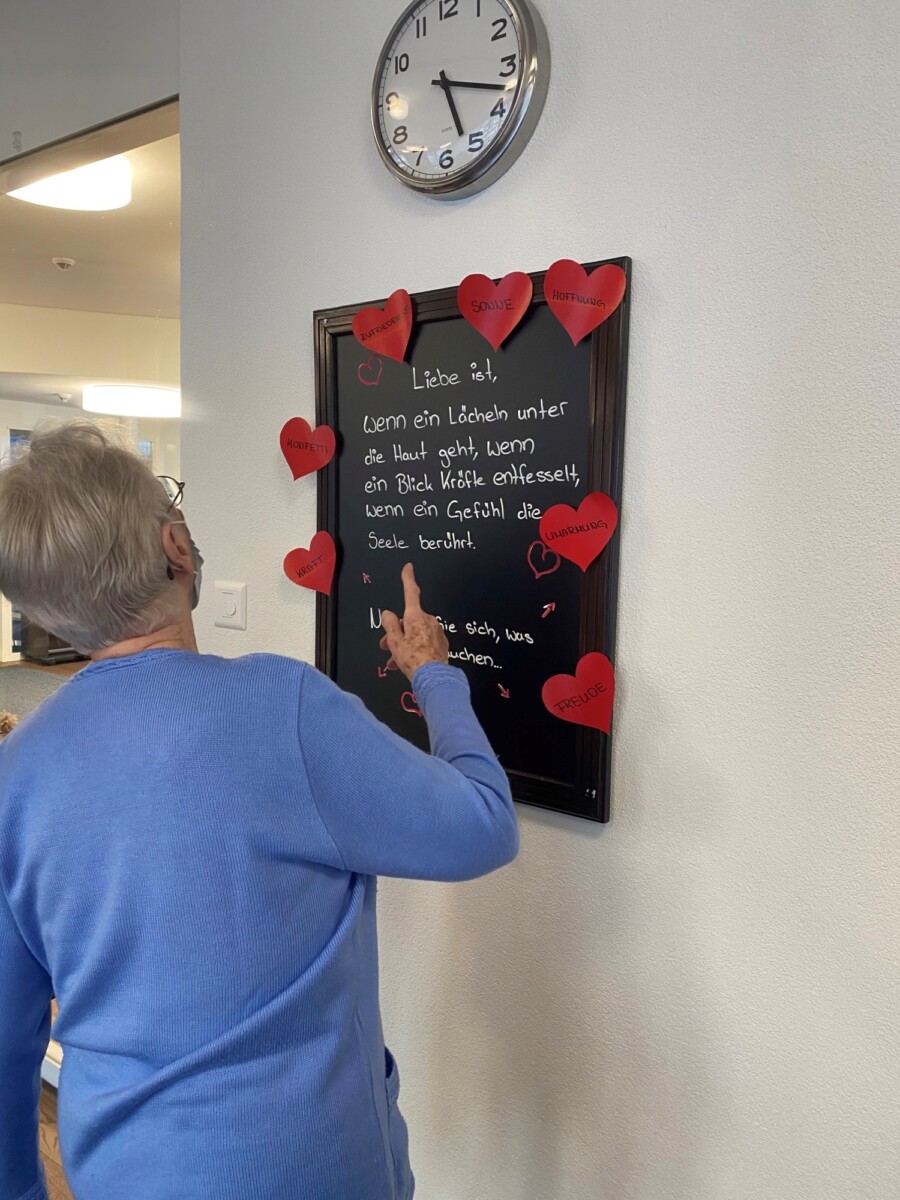 12
1
2
3
4
5
6
7
8
9
10
11
SONNE
HOFFNUNG
Liebe ist,
wenn ein Lächeln unter
die Haut geht, wenn
ein Blick Kräfte entfesselt,
wenn ein Gefühl die
Seele berührt.
KONFETTI
UMARMUNG
KRAFT
Sie sich, was
uchen...
FREUDE